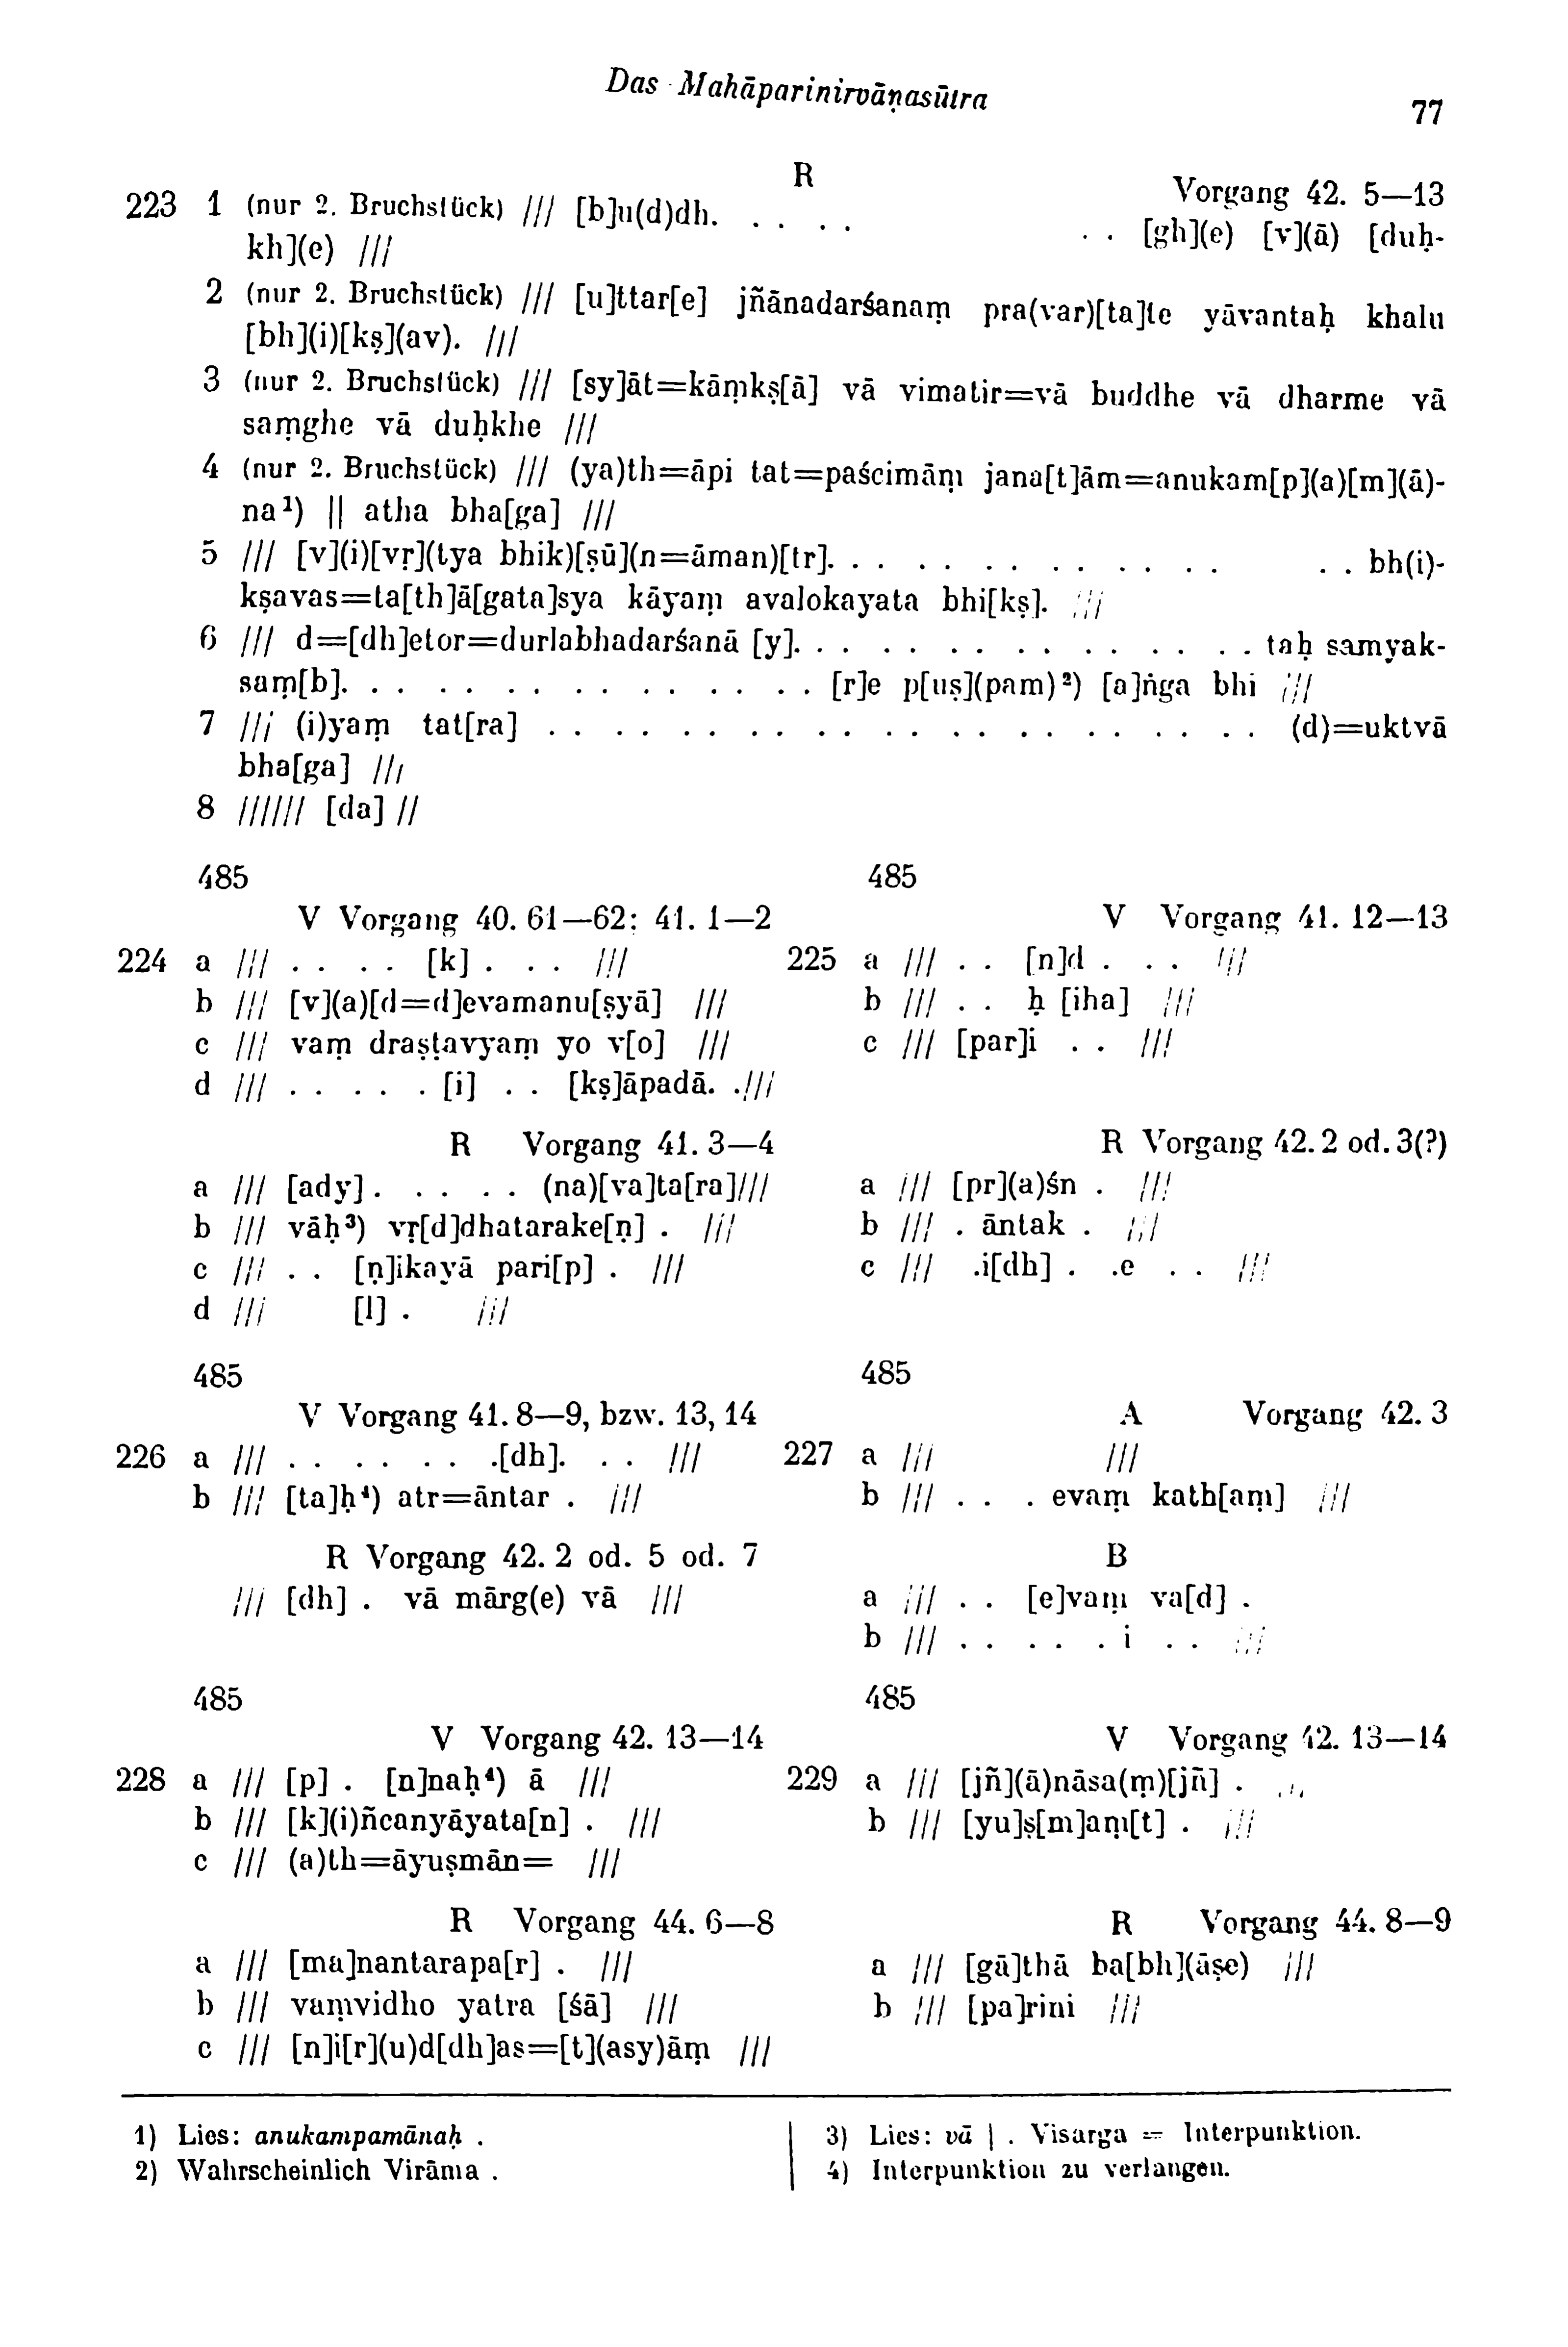 Das Mahāparinirvāṇasūtra
77
R
Vorgang 42. 5—13
223 1 (nur 2. Bruchstück) /// [b]u(d)dh. . . . . . . [gh](e) [v](ā) [duḥ-
kh](e) ///
2 (nur 2. Bruchstück) /// [u]ttar[e] jñānadarśanaṃ pra(var)[ta]te yāvantaḥ khalu
[bh](i)[kṣ](av). ///
3 (nur 2. Bruchstück) /// [sy]āt=kāṃkṣ[ā] vā vimatir=vā buddhe vā dharme vā
saṃghe vā duḥkhe ///
4 (nur 2. Bruchstück) /// (ya)th=āpi tat=paścimāṃ jana[t]ām=anukam[p](a)[m](ā)-
na¹) || atha bha[ga] ///
5 /// [v](i)[vṛ](tya bhik)[ṣū](n=āman)[tr]. . . . . . . . . . . . . . . . bh(i)-
kṣavas=ta[th]ā[gata]sya kāyaṃ avalokayata bhi[kṣ]. ///
6 /// d=[dh]etor=durlabhadarśanā [y]. . . . . . . . . . . . . . . taḥ samyak-
saṃ[b]. . . . . . . . . . . . . . . [r]e p[uṣ](pam)²) [a]ṅga bhi ///
7 /// (i)yaṃ tat[ra] . . . . . . . . . . . . . . . . . . . . . . (d)=uktvā
bha[ga] ///
8 ////// [da] //
485
V Vorgang 40. 61—62; 41. 1—2
224 a /// . . . . [k] . . . ///
b /// [v](a)[d=d]evamanu[ṣyā] ///
c /// vaṃ draṣṭavyaṃ yo v[o] ///
d /// . . . . . [i] . . [kṣ]āpadā. . ///
R Vorgang 41. 3—4
a /// [ady] . . . . . (na)[va]ta[ra]///
b /// vāḥ³) vṛ[d]dhatarake[ṇ] . ///
c /// . . [ṇ]ikayā pari[p] . ///
d /// [l] . ///
485
V Vorgang 41. 12—13
225 a /// . . [n]d . . . ///
b /// . . ḥ [iha] ///
c /// [par]i . . ///
R Vorgang 42. 2 od. 3(?)
a /// [pr](a)śn . ///
b /// . āntak . ///
c /// .i[dh] . .e . . ///
485
V Vorgang 41. 8—9, bzw. 13, 14
226 a /// . . . . . . .[dh]. . . ///
b /// [ta]ḥ⁴) atr=āntar . ///
R Vorgang 42. 2 od. 5 od. 7
/// [dh] . vā mārg(e) vā ///
485
A Vorgang 42. 3
227 a /// ///
b /// . . . evaṃ kath[aṃ] ///
B
a /// . . [e]vaṃ va[d] .
b /// . . . . . i . . ///
485
V Vorgang 42. 13—14
228 a /// [p] . [n]naḥ⁴) ā ///
b /// [k](i)ñcanyāyata[n] . ///
c /// (a)th=āyuṣmān= ///
R Vorgang 44. 6—8
a /// [ma]nantarapa[r] . ///
b /// vaṃvidho yatra [śā] ///
c /// [n]i[r](u)d[dh]as=[t](asy)āṃ ///
485
V Vorgang 42. 13—14
229 a /// [jñ](ā)nāsa(ṃ)[jñ] . ///
b /// [yu]ṣ[m]aṃ[t] . ///
R Vorgang 44. 8—9
a /// [gā]thā ba[bh](āṣe) ///
b /// [pa]rini ///
1) Lies: anukampamānaḥ .
2) Wahrscheinlich Virāma .
3) Lies: vā | . Visarga = Interpunktion.
4) Interpunktion zu verlangen.